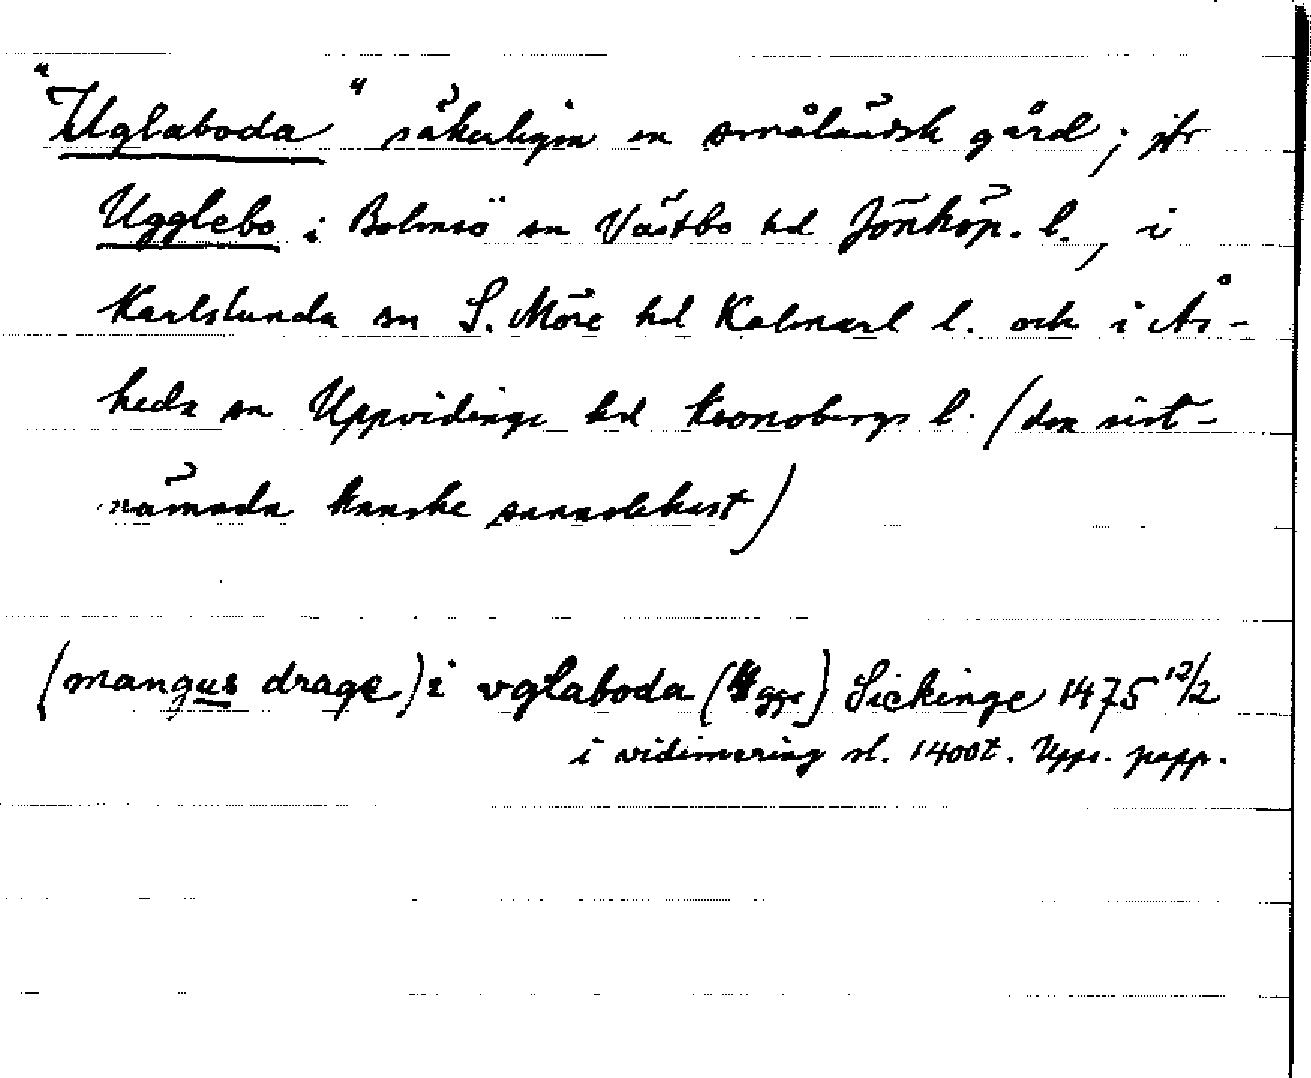 "Uglaboda" säkerligen en småländsk gård; jfr
Ugglebo i Bolmsö sn Västbo hd Jönköp. l., i
Karlslunda sn S. Möre hd Kalmar l. och i Ås-
heda sn Uppvidinge hd Kronobergs l. (den sist-
nämnda kanske sannolikast)
(mangus drage) i vglaboda (Ugge) Sickinge 1475 12/2
i vidimering sl. 1400t. Upps. papp.